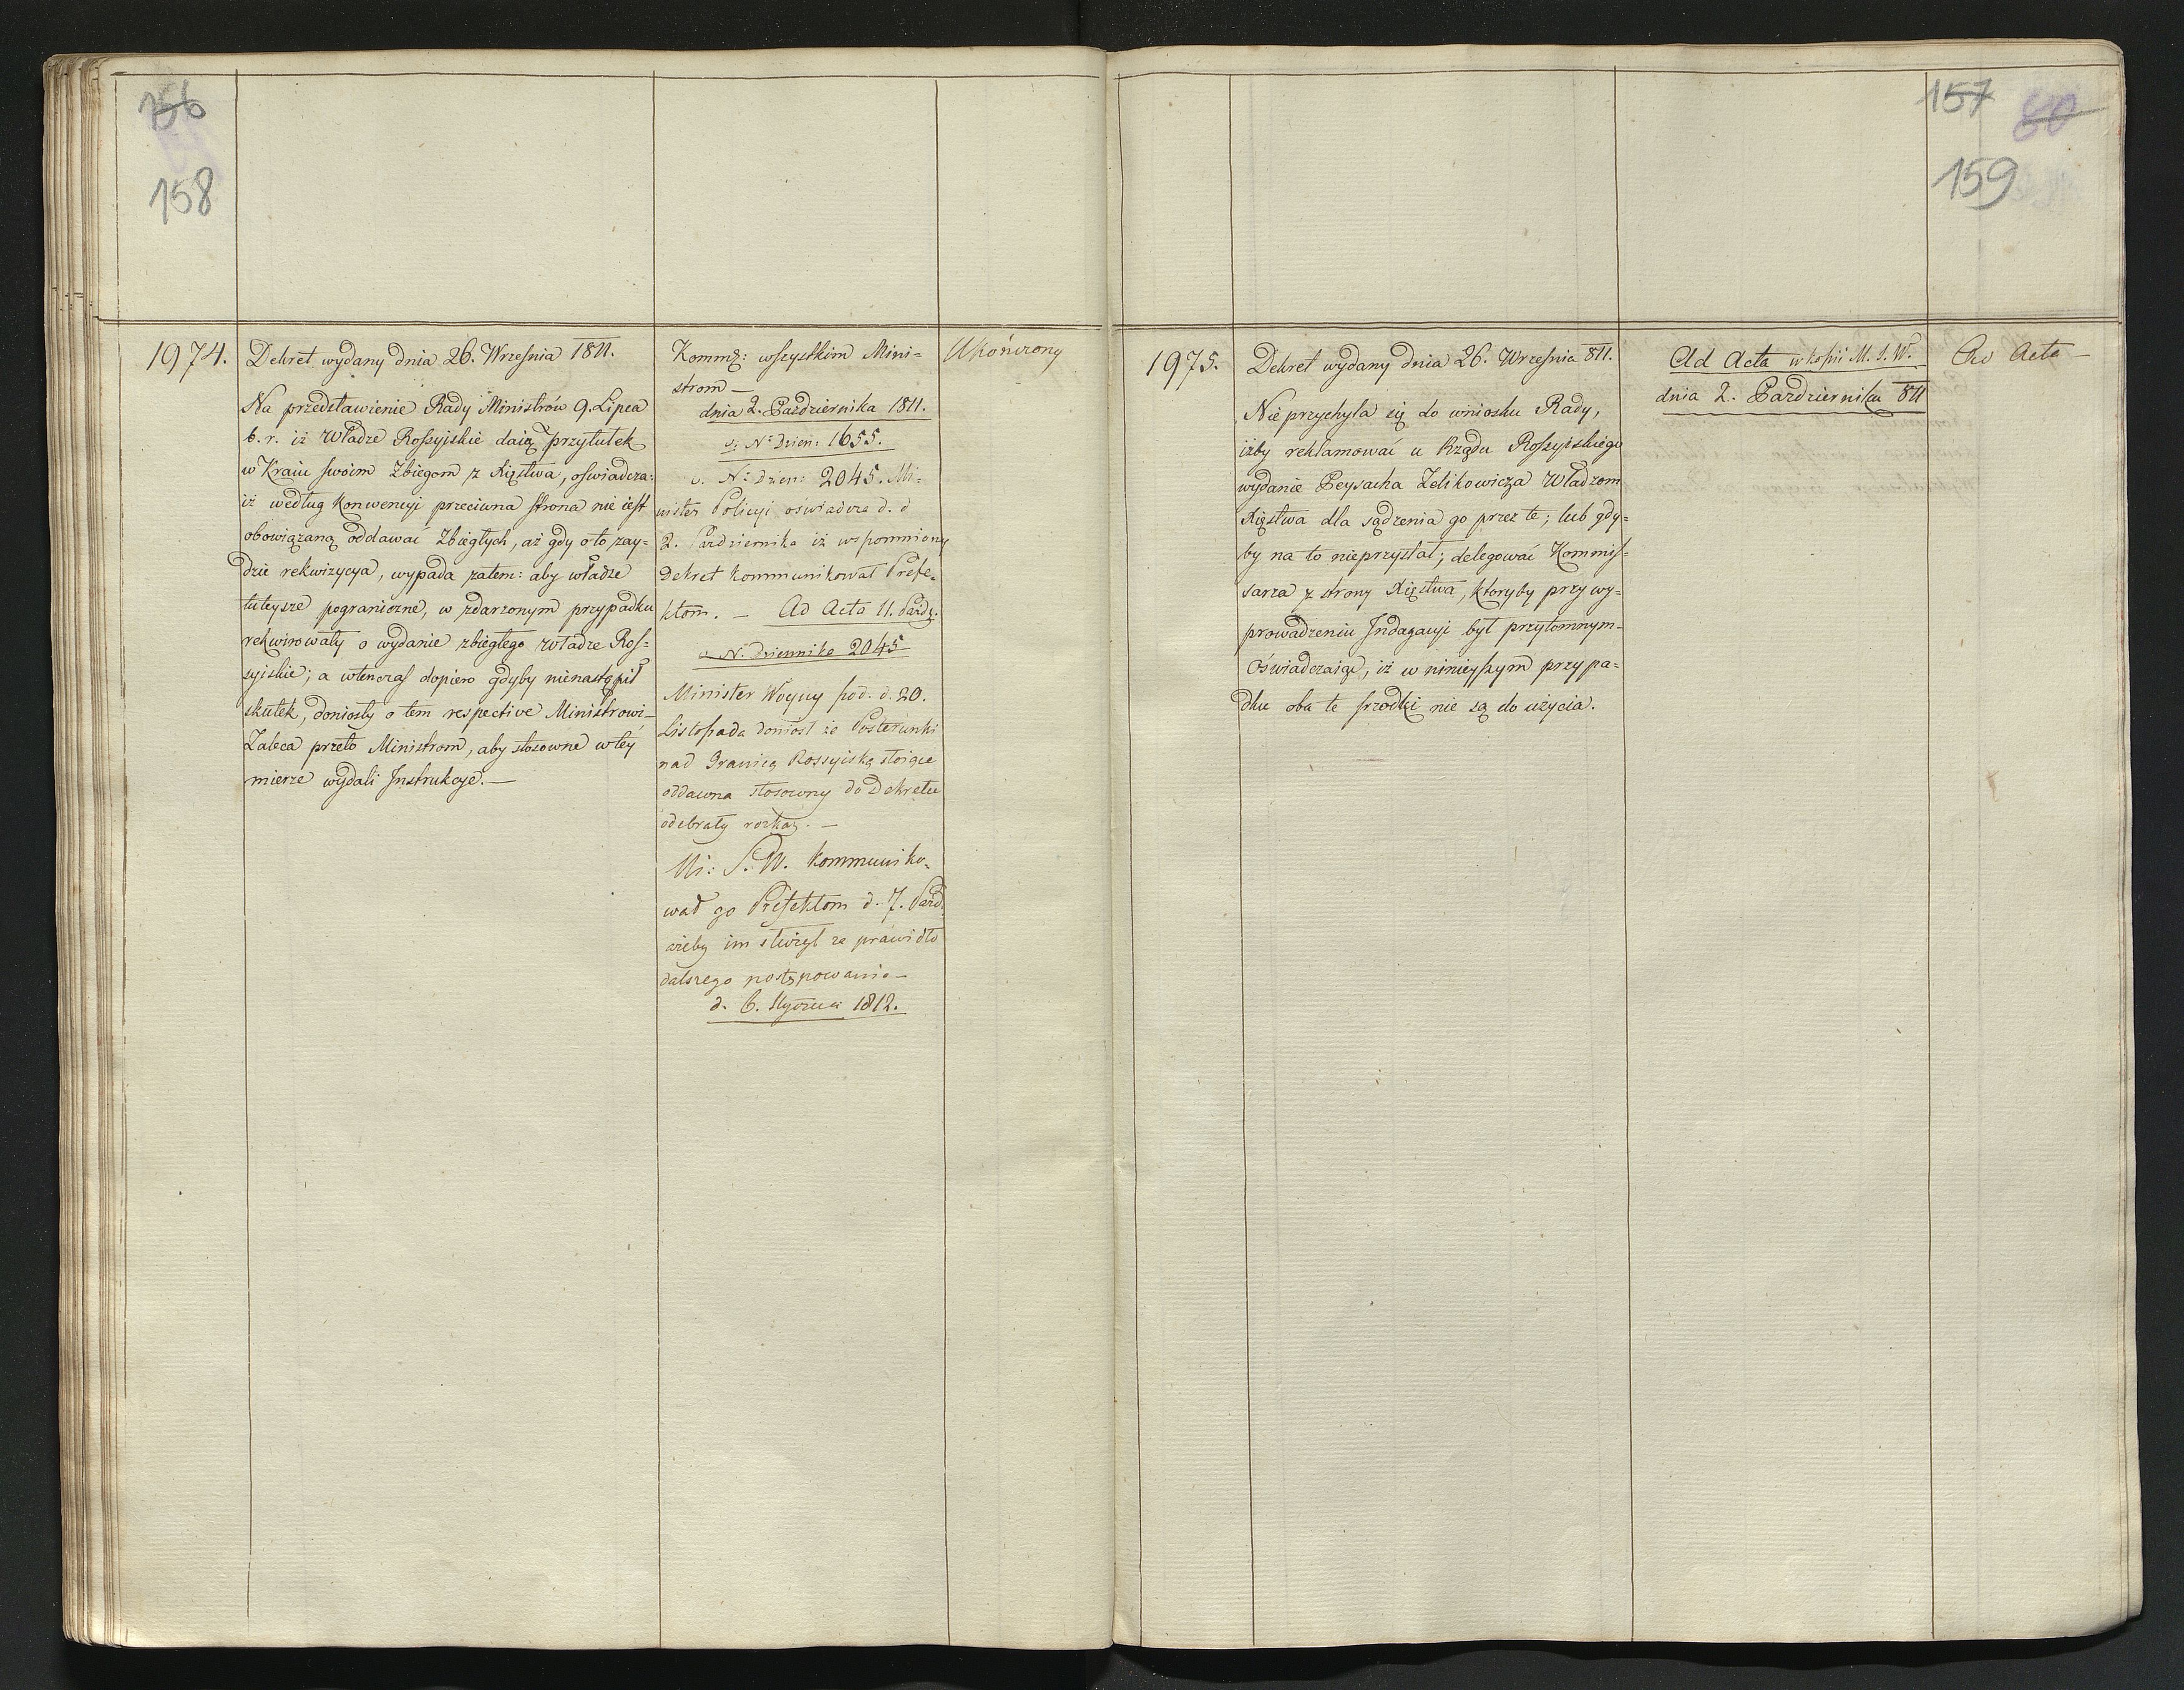 156
158
1974.
Dekret wydany dnia 26. Września 1811.
Na przedstawienie Rady Ministrów 9. Lipca
b. r. iż Władze Rossyiskie daią przytułek
w Kraiu swoim Zbiegom z Xięstwa, oświadcza:
iż według Konwencyi przeciwna strona nie iest
obowiązaną oddawać Zbiegłych, aż gdy o to zay=
dzie rekwizycya, wypada zatem: aby władze
tuteysze pograniczne, w zdarzonym przypadku
rekwirowały o wydanie zbiegłego Władze Ros=
syiskie; a wtenczas dopiero gdyby nienastąpił
skutek, doniosły o tem respective Ministrowi—
Zaleca przeto Ministrom, aby stosowne w tey
mierze wydali Instrukcye.—
Kommg: wszystkim Mini=
strom—
dnia 2. Października 1811.
v. No Dzien: 1655.
v. No dzien: 2045. Mi=
nister Policyi oświadcza d. d
2. Października iż wspomniony
Dekret kommunikował Prefe=
ktom. — Ad Acta 11. Paźdz.
v. N. Dziennika 2045
Minister Woyny pod. d. 20.
Listopada doniosł że Posterunki
nad Granicą Rossyiską stoiące
oddawna stosowny do Dekretu
odebrały rozkaz. —
Mi: S. W. kommuniko=
wał go Prefektom d. 7. Paźd.
ażeby im służył za prawidło
dalszego postępowania—
d. 6. Stycznia 1812.
Ukończony
157 80
159
1975.
Dekret wydany dnia 26. Września 811.
Nie przychyla się do wniosku Rady,
iżby reklamować u Rządu Rossyiskiego
wydanie Peysacha Zelikowicza Władzom
Xięstwa dla sądzenia go przez te; lub gdy=
by na to nieprzystał; delegować Kommis=
sarza z strony Xięstwa, ktoryby przy wy=
prowadzeniu Indagacyi był przytomnym—
Oświadczaiąc, iż w ninieyszym przypa=
dku oba te srzodki nie są do użycia.
Ad Acta w kopii M. S. W.
dnia 2. Października 811
Ad Acta—